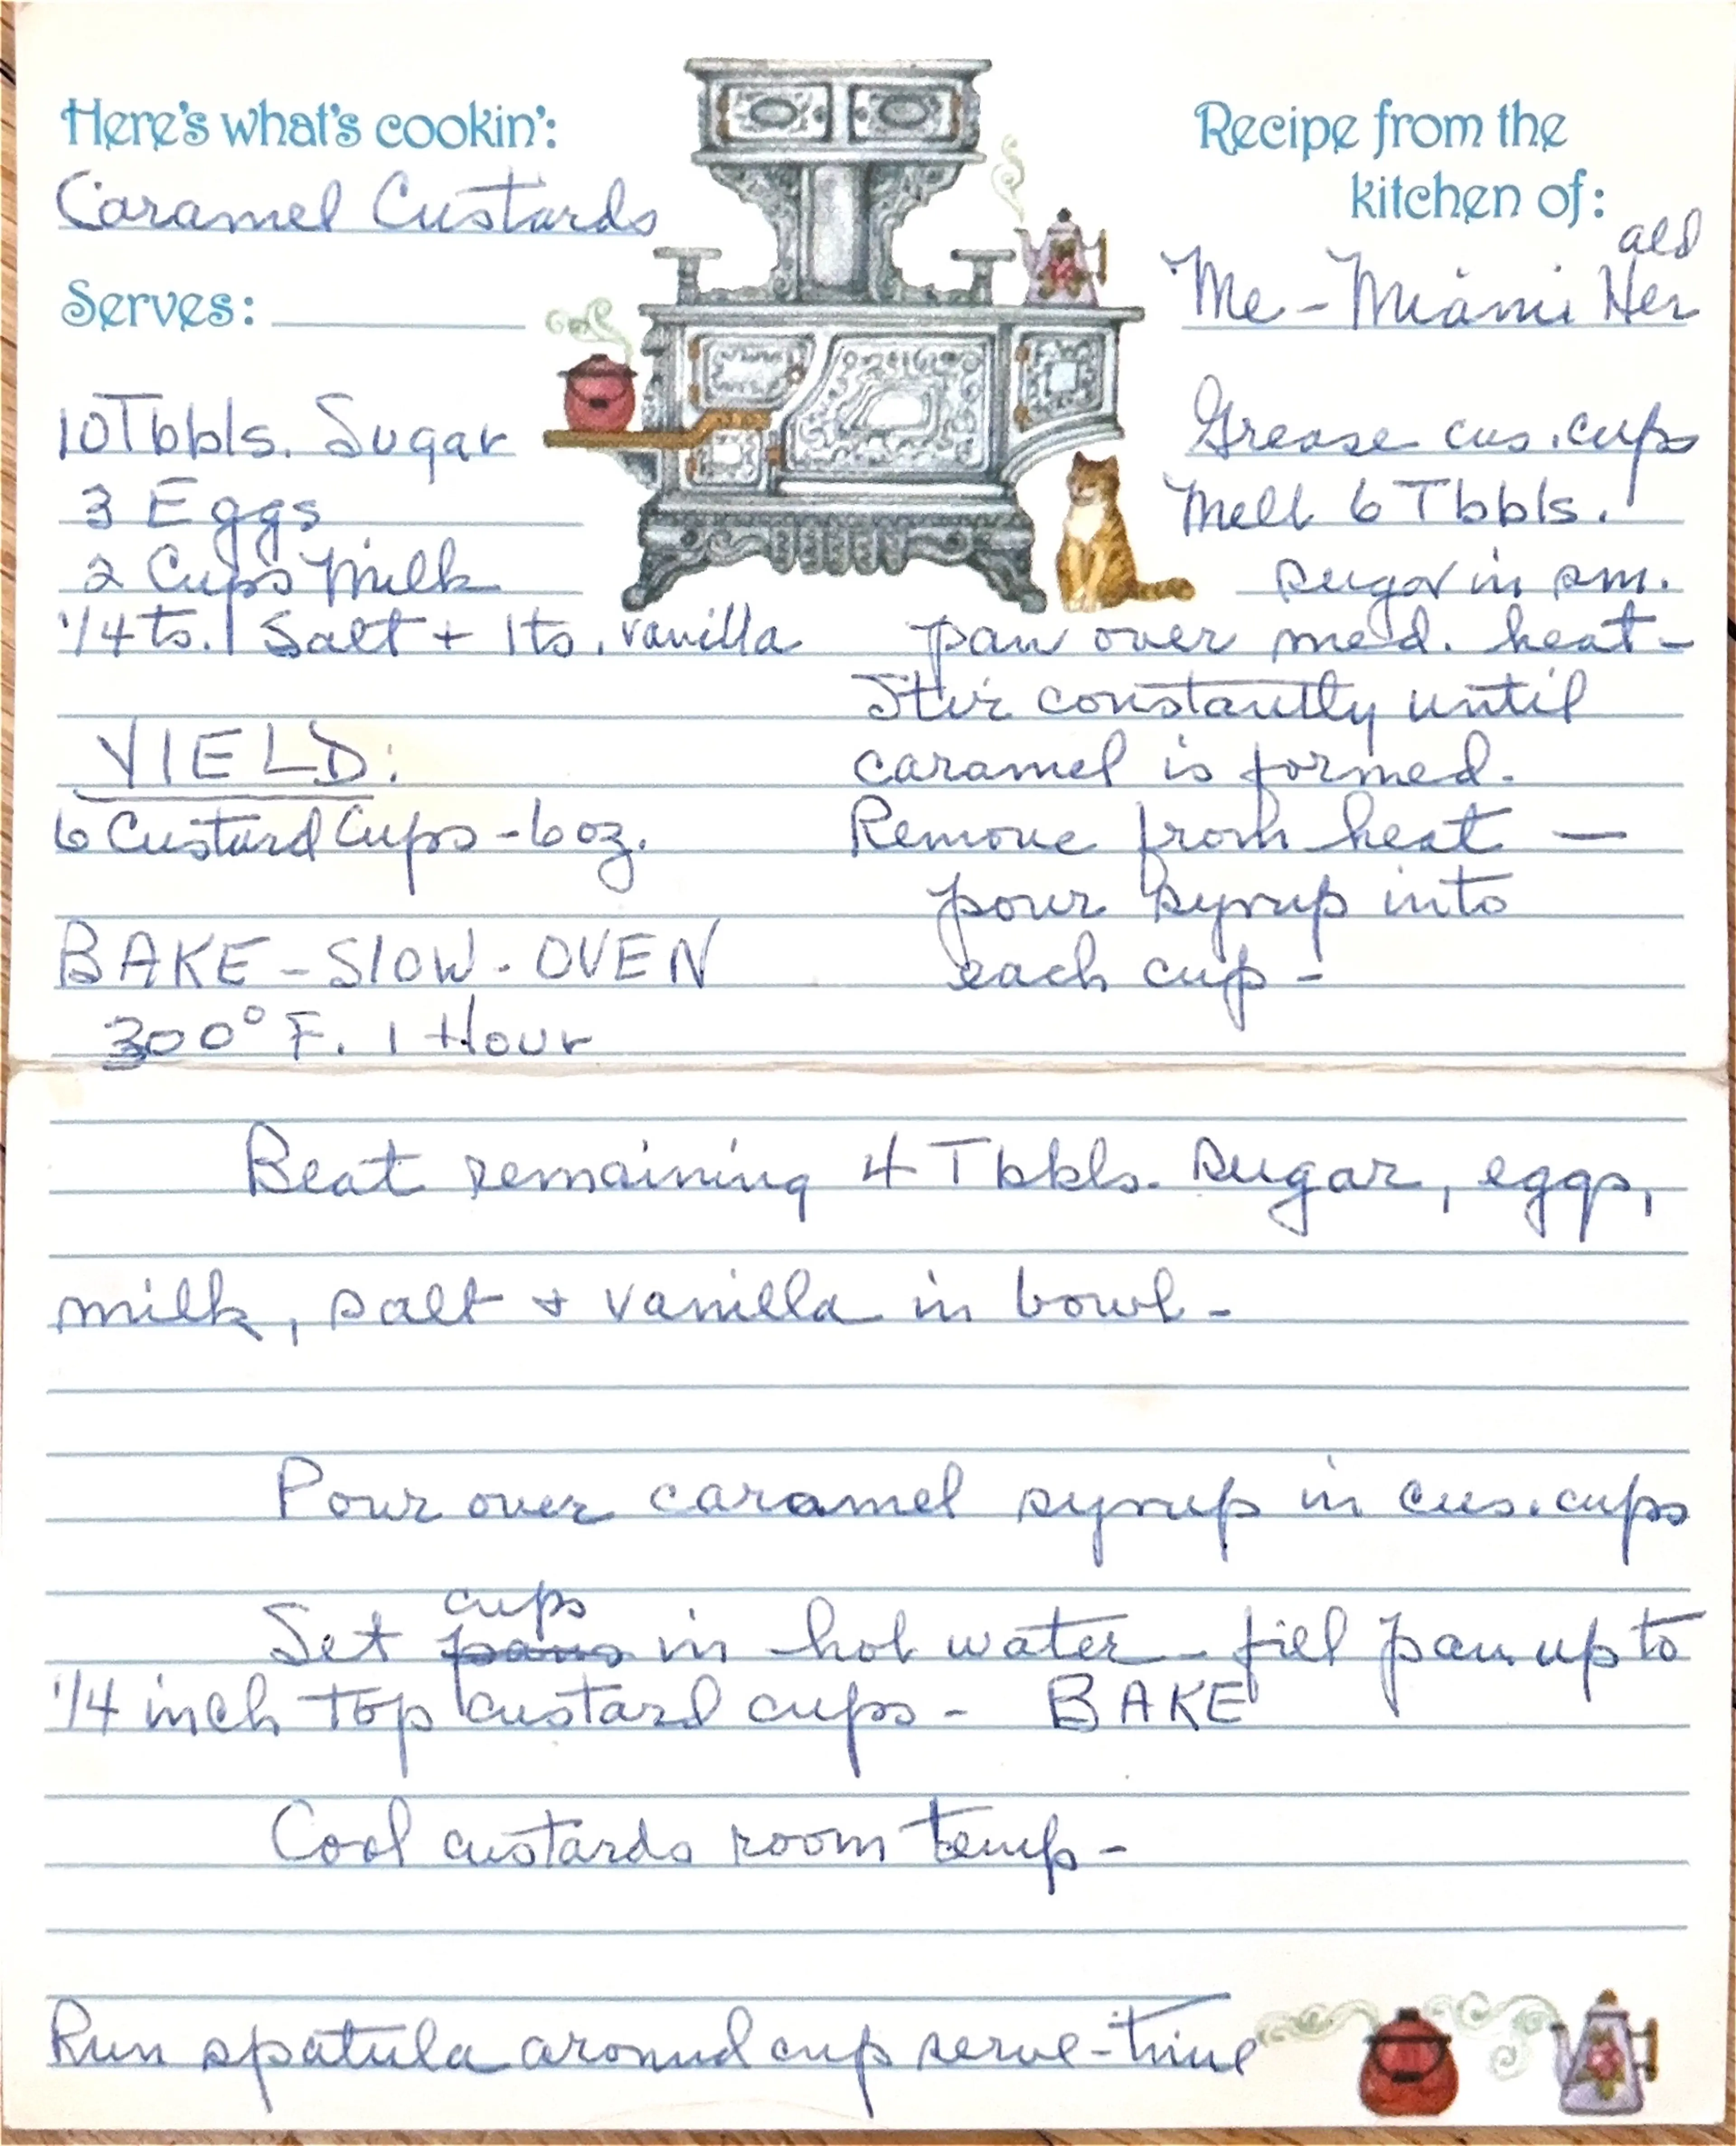 Here's what's cookin':
Caramel Custards
Serves:
Recipe from the
kitchen of:
ald
Me - Miami Her
10 Tbbls. Sugar
3 Eggs
2 Cups Milk
1/4 ts. Salt + 1 ts. vanilla
YIELD:
6 Custard Cups - 6 oz.
BAKE - SLOW - OVEN
300° F. 1 Hour
Grease cus. cups
Melt 6 Tbbls.
sugar in sm.
pan over med. heat -
Stir constantly until
caramel is formed.
Remove from heat —
pour syrup into
each cup -
Beat remaining 4 Tbbls. sugar, eggs,
milk, salt + vanilla in bowl -
Pour over caramel syrup in cus. cups
cups
Set pans in hot water - fill pan up to
1/4 inch top custard cups - BAKE
Cool custards room temp -
Run spatula around cup serve-time